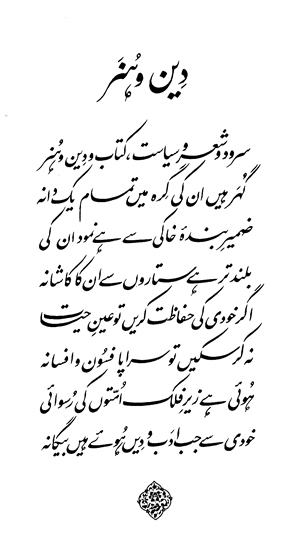 دِین و ہُنَر
سرود و شعر و سیاست، کتاب و دِین و ہُنر
گُہَر ہیں ان کی گرہ میں تمام یک دانہ
ضمیرِ بندۂ خاکی سے ہے نمود ان کی
بلند تر ہے ستاروں سے ان کا کاشانہ
اگر خودی کی حفاظت کریں تو عینِ حیات
نہ کر سکیں تو سراپا فسُون و افسانہ
ہُوئی ہے زیرِ فلک اُمتّوں کی رُسوائی
خودی سے جب ادَب و دِیں ہُوئے ہیں بیگانہ